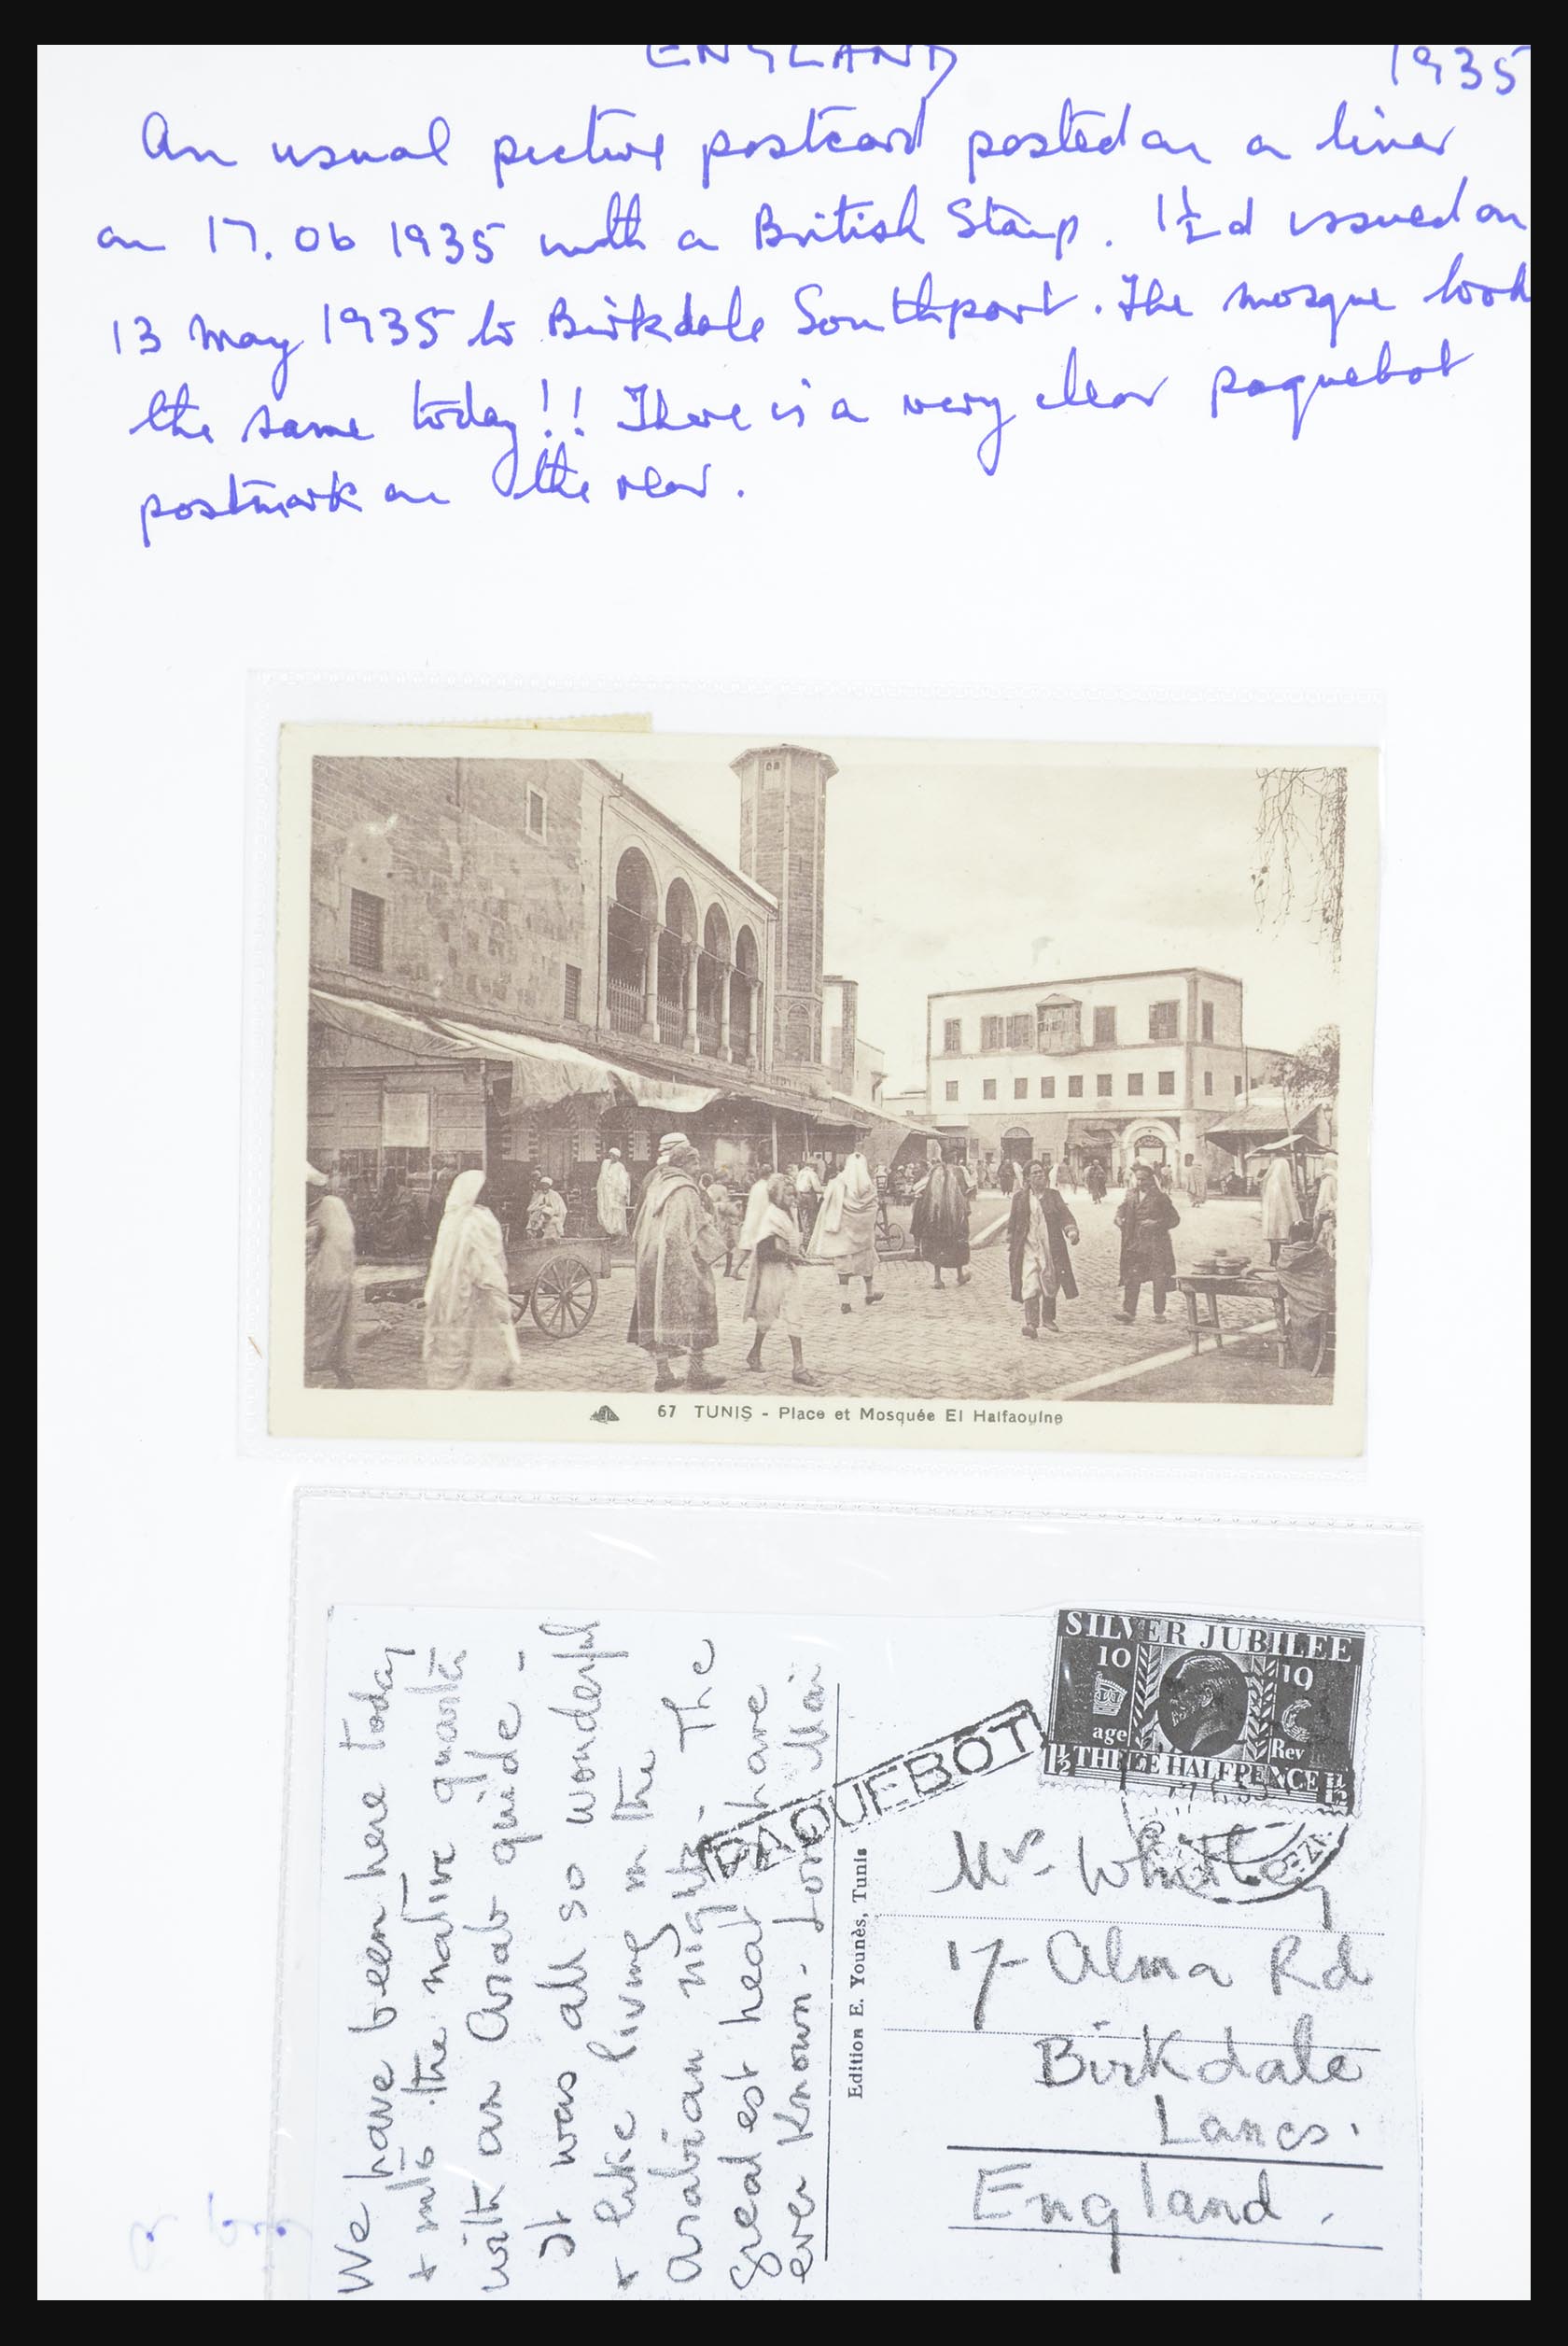 ENGLAND 1935
An usual picture postcard posted on a liner
on 17.06 1935 with a British Stamp. 1½d issued on
13 May 1935 to Birkdale Southport. The mosque look
the same today!! There is a very clear paquebot
postmark on the rear.
67 TUNIS - Place et Mosquée El Halfaouine
We have been here today
+ into the native quarter
with an Arab guide -
It was all so wonderful
+ like living in the
arabian nights. The
greatest heat I have
ever known - Love
PAQUEBOT
Edition E. Younès, Tunis
SILVER JUBILEE
1910 1935
age Rev
1½ THREE HALFPENCE 1½
Mrs Whitley
17 Alma Rd
Birkdale
Lancs.
England.